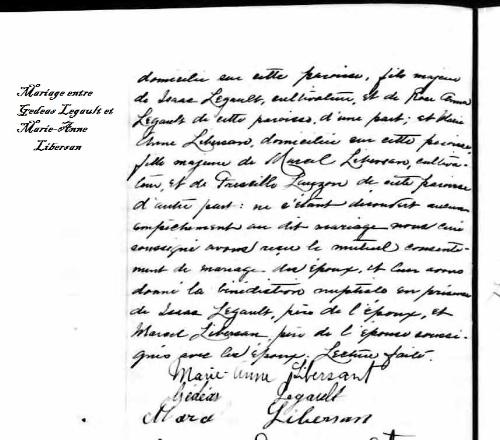 Mariage entre
Gedeas Legault et
Marie-Anne
Libersan
domicilié sur cette paroisse, fils majeur
de Isaac Legault, cultivateur, et de Rose Anna
Legault de cette paroisse, d'une part; et Marie
Anne Libersan, domiciliée sur cette paroisse
fille majeure de Marcel Libersan, cultiva-
teur, et de Lauzon de cette paroisse
d'autre part: ne s'étant découvert aucun
empêchement au dit mariage nous curé
soussigné avons reçu le mutuel consente-
ment de mariage des époux, et leur avons
donné la bénédiction nuptiale en présence
de Isaac Legault, père de l'époux, et
Marcel Libersan père de l'épouse soussi-
gnés avec les époux. Lecture faite.
Marie-Anne Libersant
Gédéas Legault
Libersan